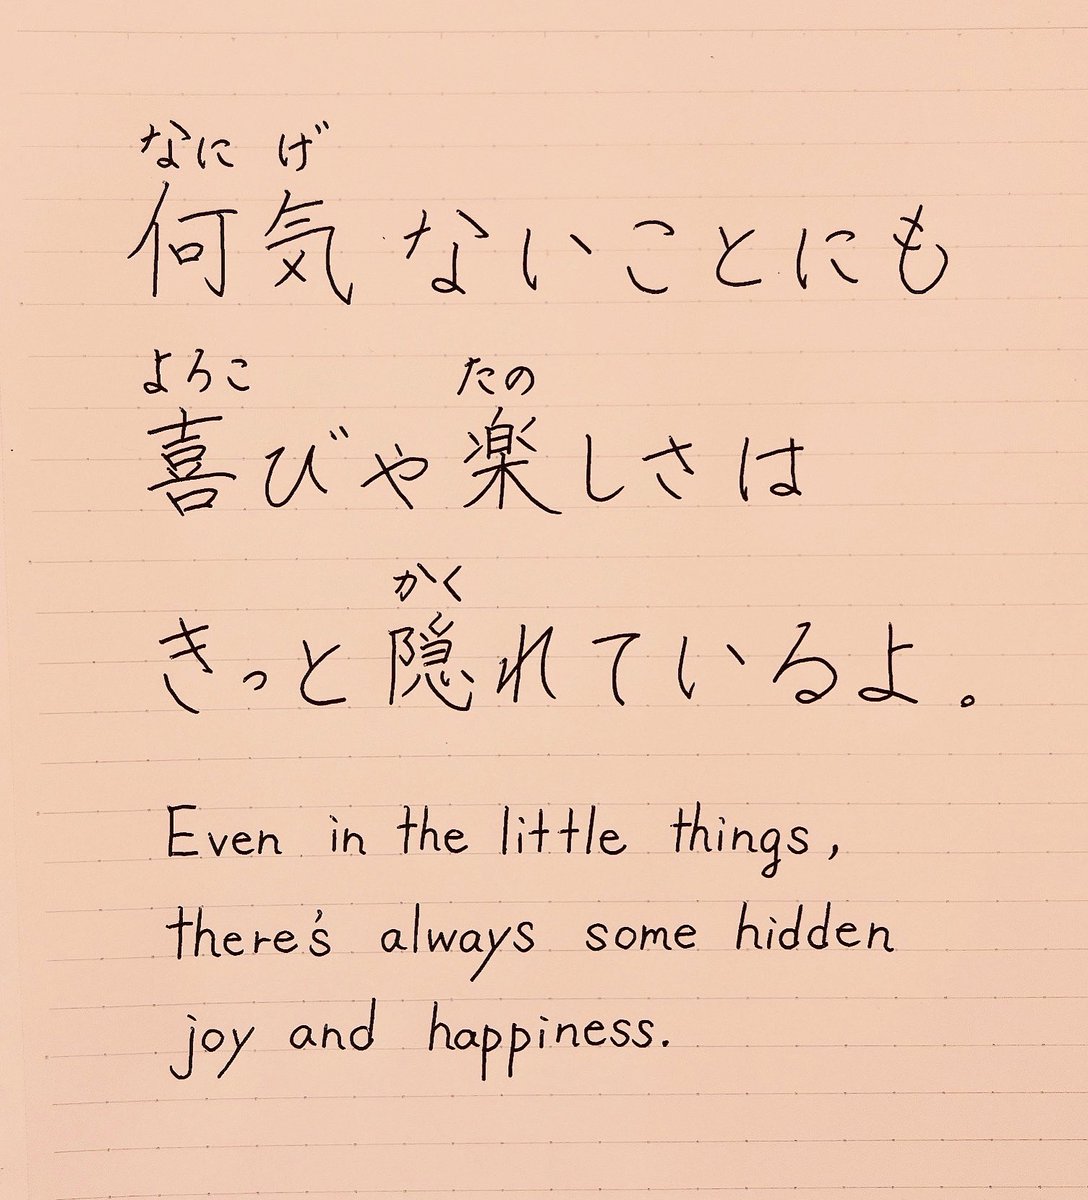 なに げ
何気ないことにも
よろこ たの
喜びや楽しさは
かく
きっと隠れているよ。
Even in the little things,
there's always some hidden
joy and happiness.